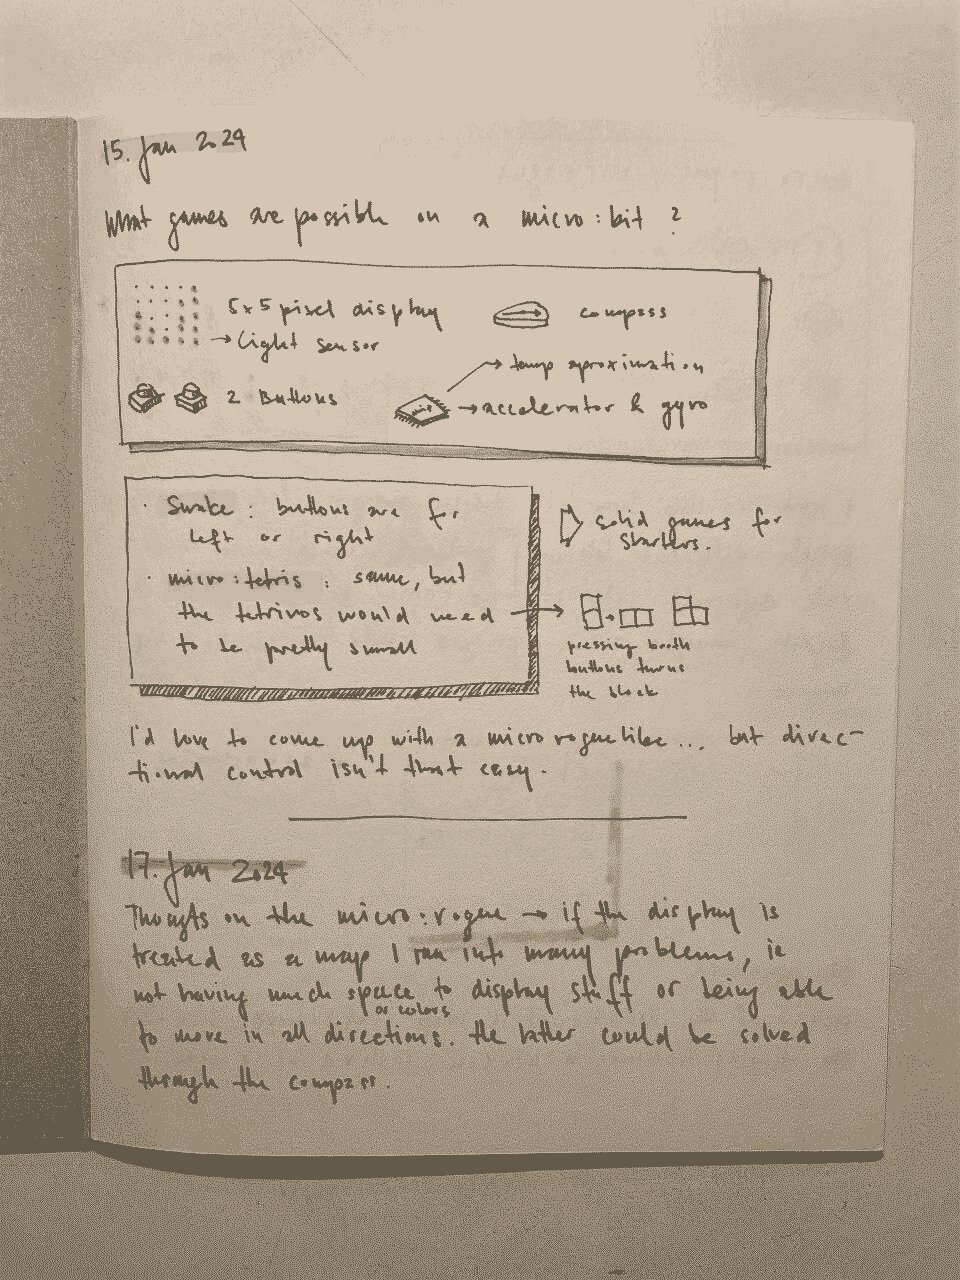 15. Jan 2024
What games are possible on a micro:bit ?
5x5 pixel display
→ light sensor
2 Buttons
compass
→ temp aproximation
→ accelerator & gyro
· Snake : buttons are for
left or right
· micro:tetris : same, but
the tetrinos would need
to be pretty small
solid games for
starters.
pressing booth
buttons turns
the block
I'd love to come up with a micro roguelike ... but direc-
tional control isn't that easy.
17. Jan 2024
Thougts on the micro:rogue → if the display is
treated as a map I ran into many problems, ie
not having much space to display stuff or being able
or colors
to move in all directions. the latter could be solved
through the compass.